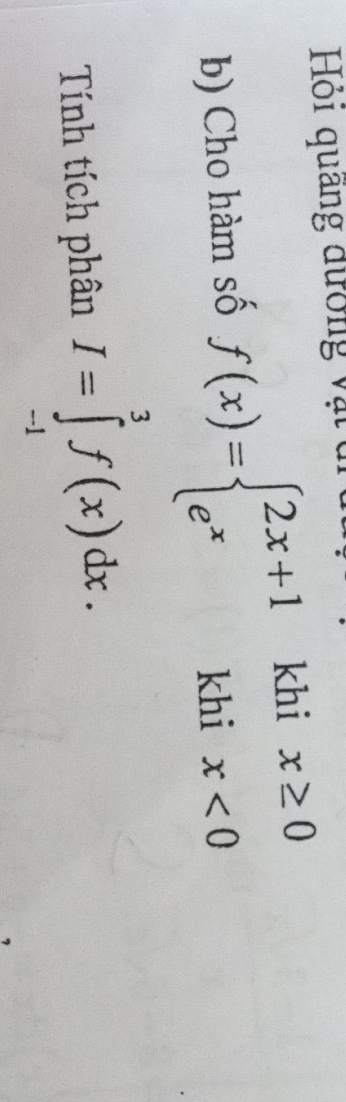 Hỏi quãng đường vật đi
b) Cho hàm số f(x) = { 2x+1 khi x ≥ 0
e^x khi x < 0
Tính tích phân I = ∫_{-1}^{3} f(x)dx.